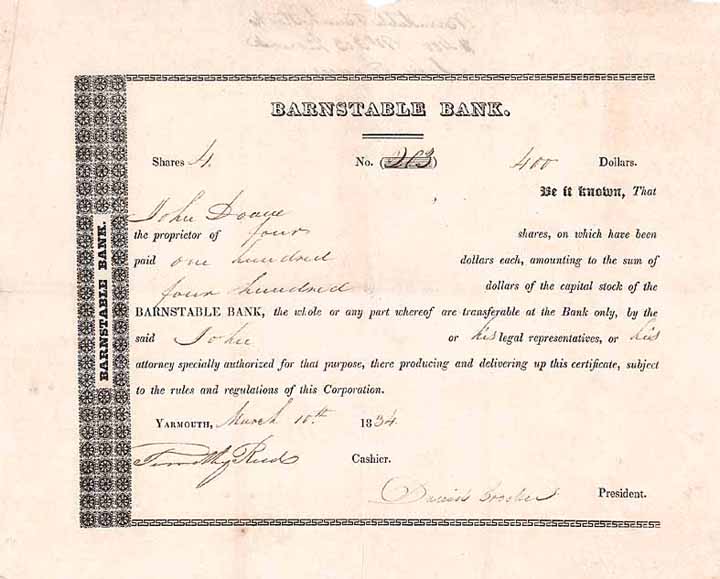 BARNSTABLE BANK.
Shares 4. No. (203) 400 Dollars.
Be it known, That
John Doane
the proprietor of four shares, on which have been
paid one hundred dollars each, amounting to the sum of
four hundred dollars of the capital stock of the
BARNSTABLE BANK, the whole or any part whereof are transferable at the Bank only, by the
said John or his legal representatives, or his
attorney specially authorized for that purpose, there producing and delivering up this certificate, subject
to the rules and regulations of this Corporation.
YARMOUTH, March 10th. 1834.
Timothy Reed Cashier.
President.
BARNSTABLE BANK.